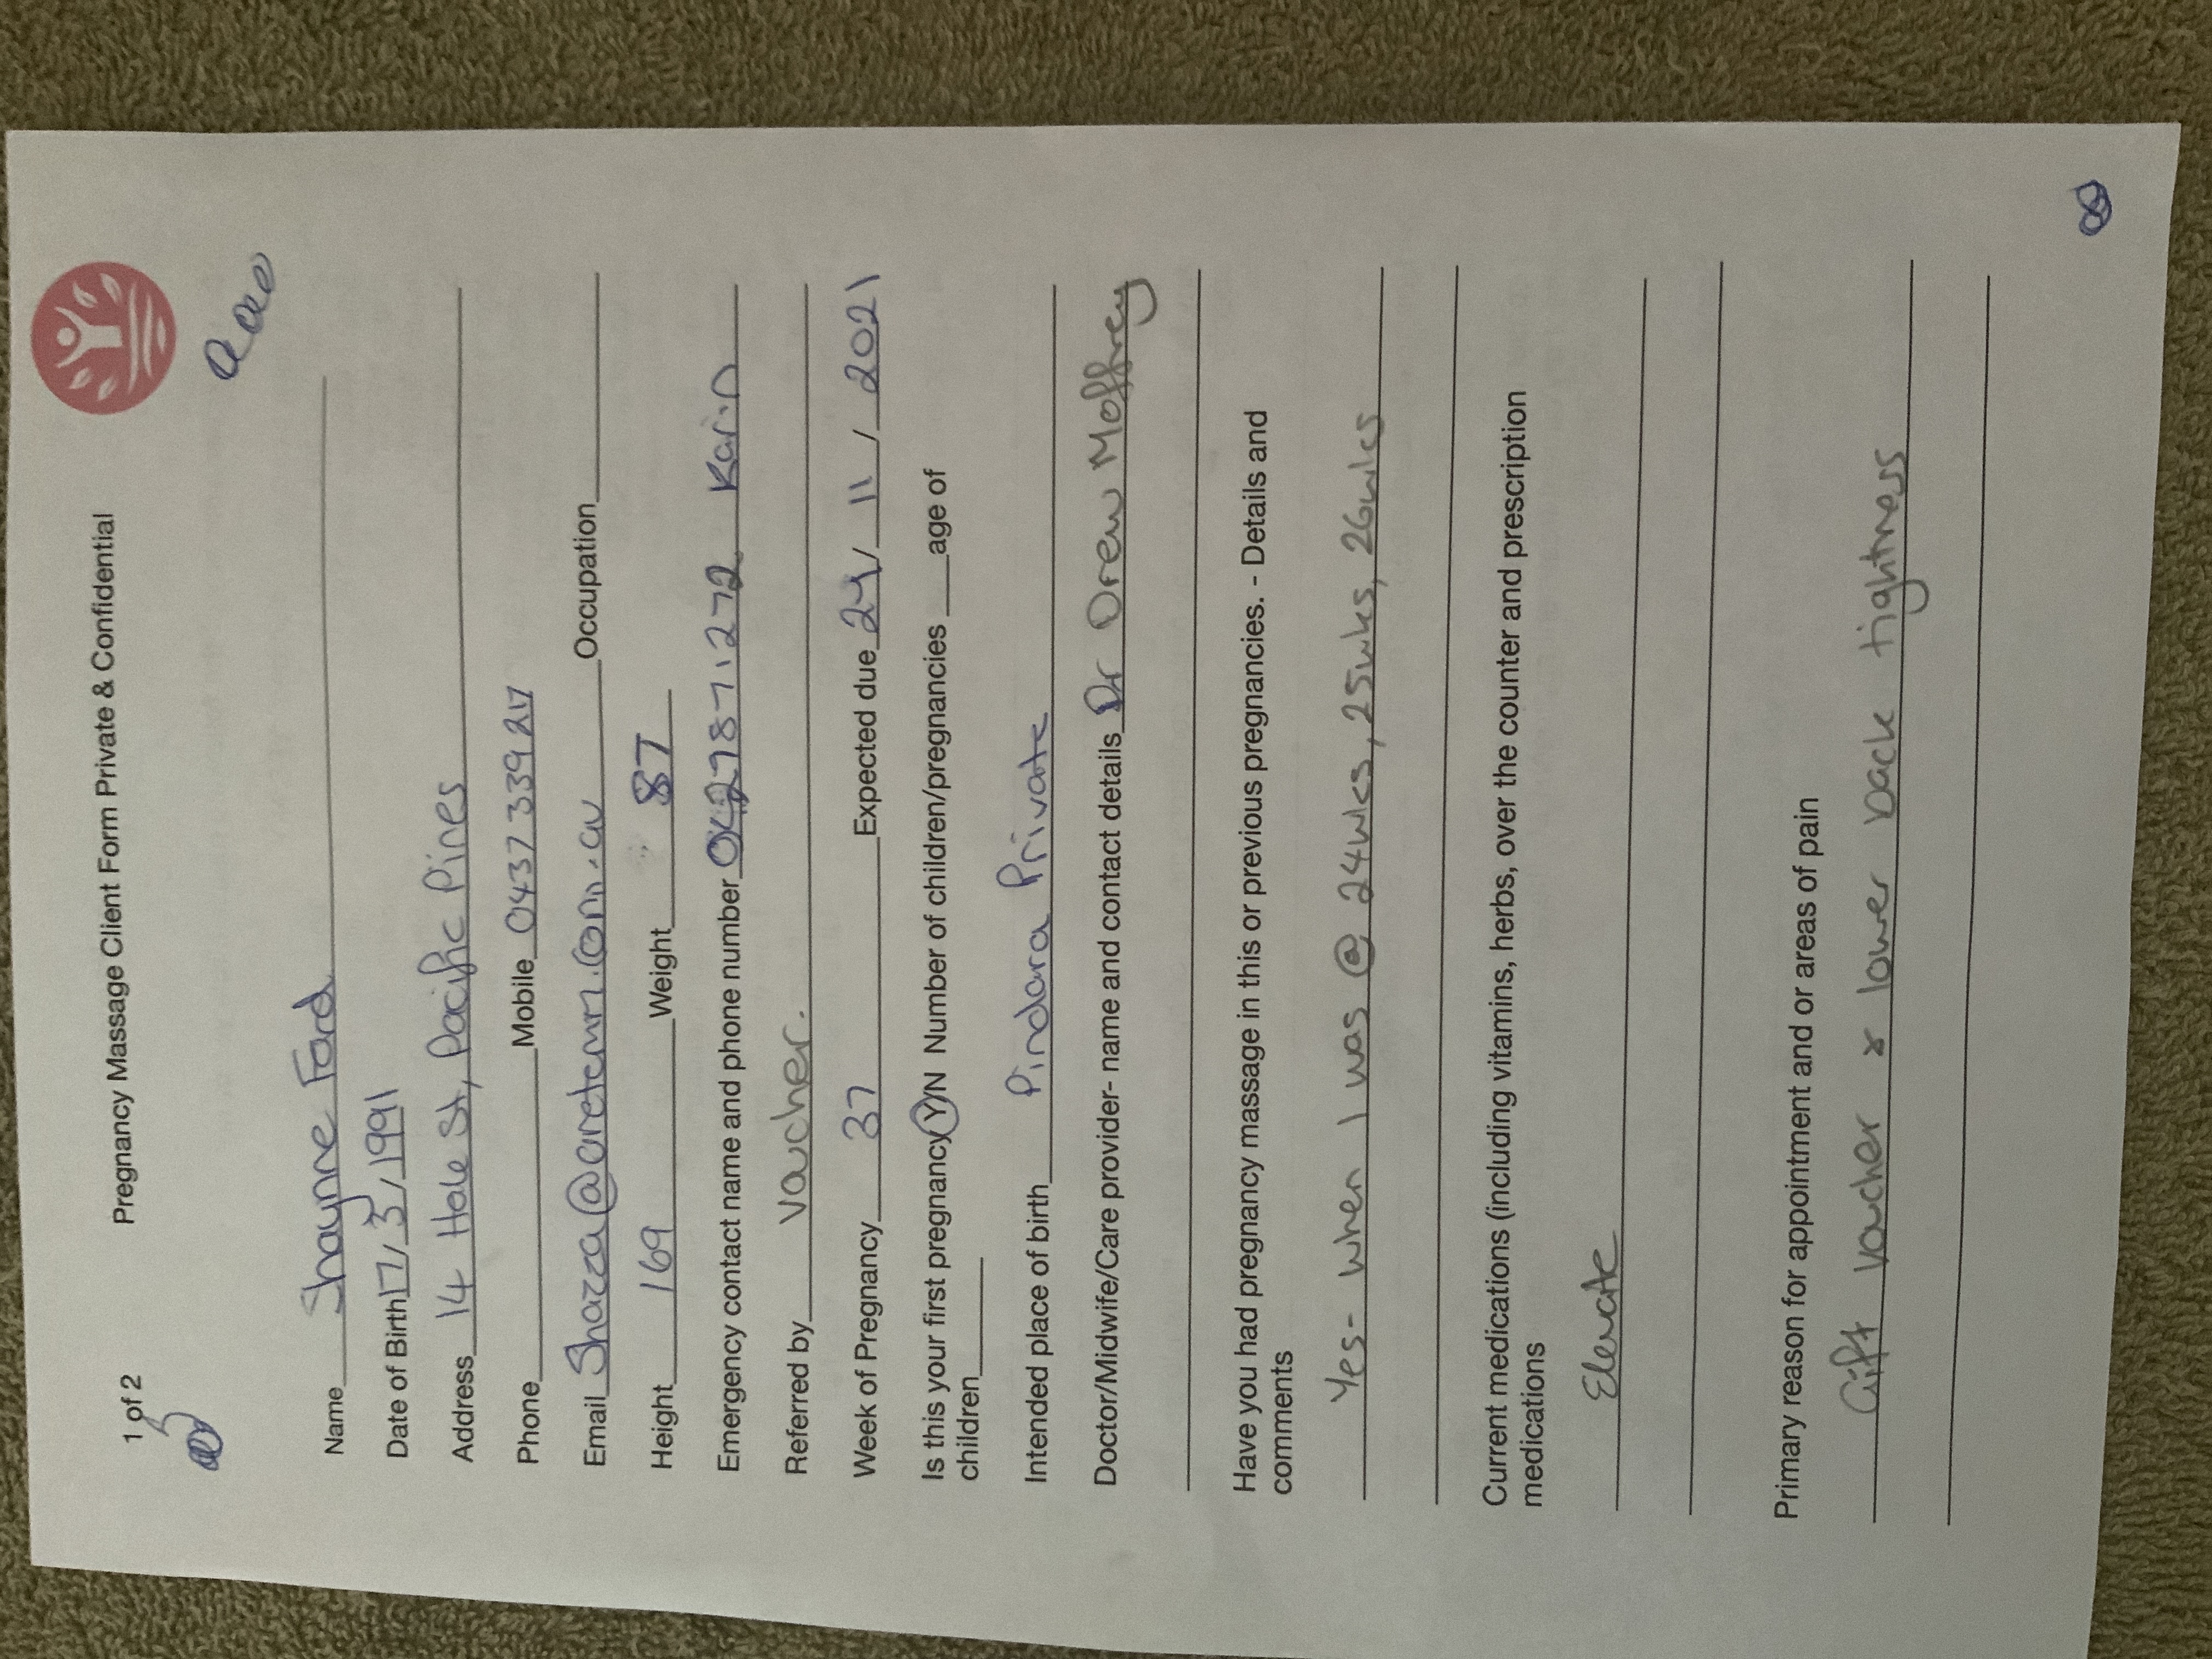 1 of 2 Pregnancy Massage Client Form Private & Confidential
Name Shayne Ford
Date of Birth 17/3/1991
Address 14 St, Pacific Pines
Phone Mobile 0437 339 217
Email Occupation
Height 169 Weight 87
Emergency contact name and phone number Karin
Referred by Voucher.
Week of Pregnancy 37 Expected due 24/ 11 / 2021
Is this your first pregnancy Y/N Number of children/pregnancies ___age of
children
Intended place of birth Pindara Private
Doctor/Midwife/Care provider- name and contact details Dr Drew Moffrey
Have you had pregnancy massage in this or previous pregnancies. - Details and
comments
Yes- when I was @ 24wks, 25wks, 26wks
Current medications (including vitamins, herbs, over the counter and prescription
medications
Elevate
Primary reason for appointment and or areas of pain
Gift voucher & lower back tightness